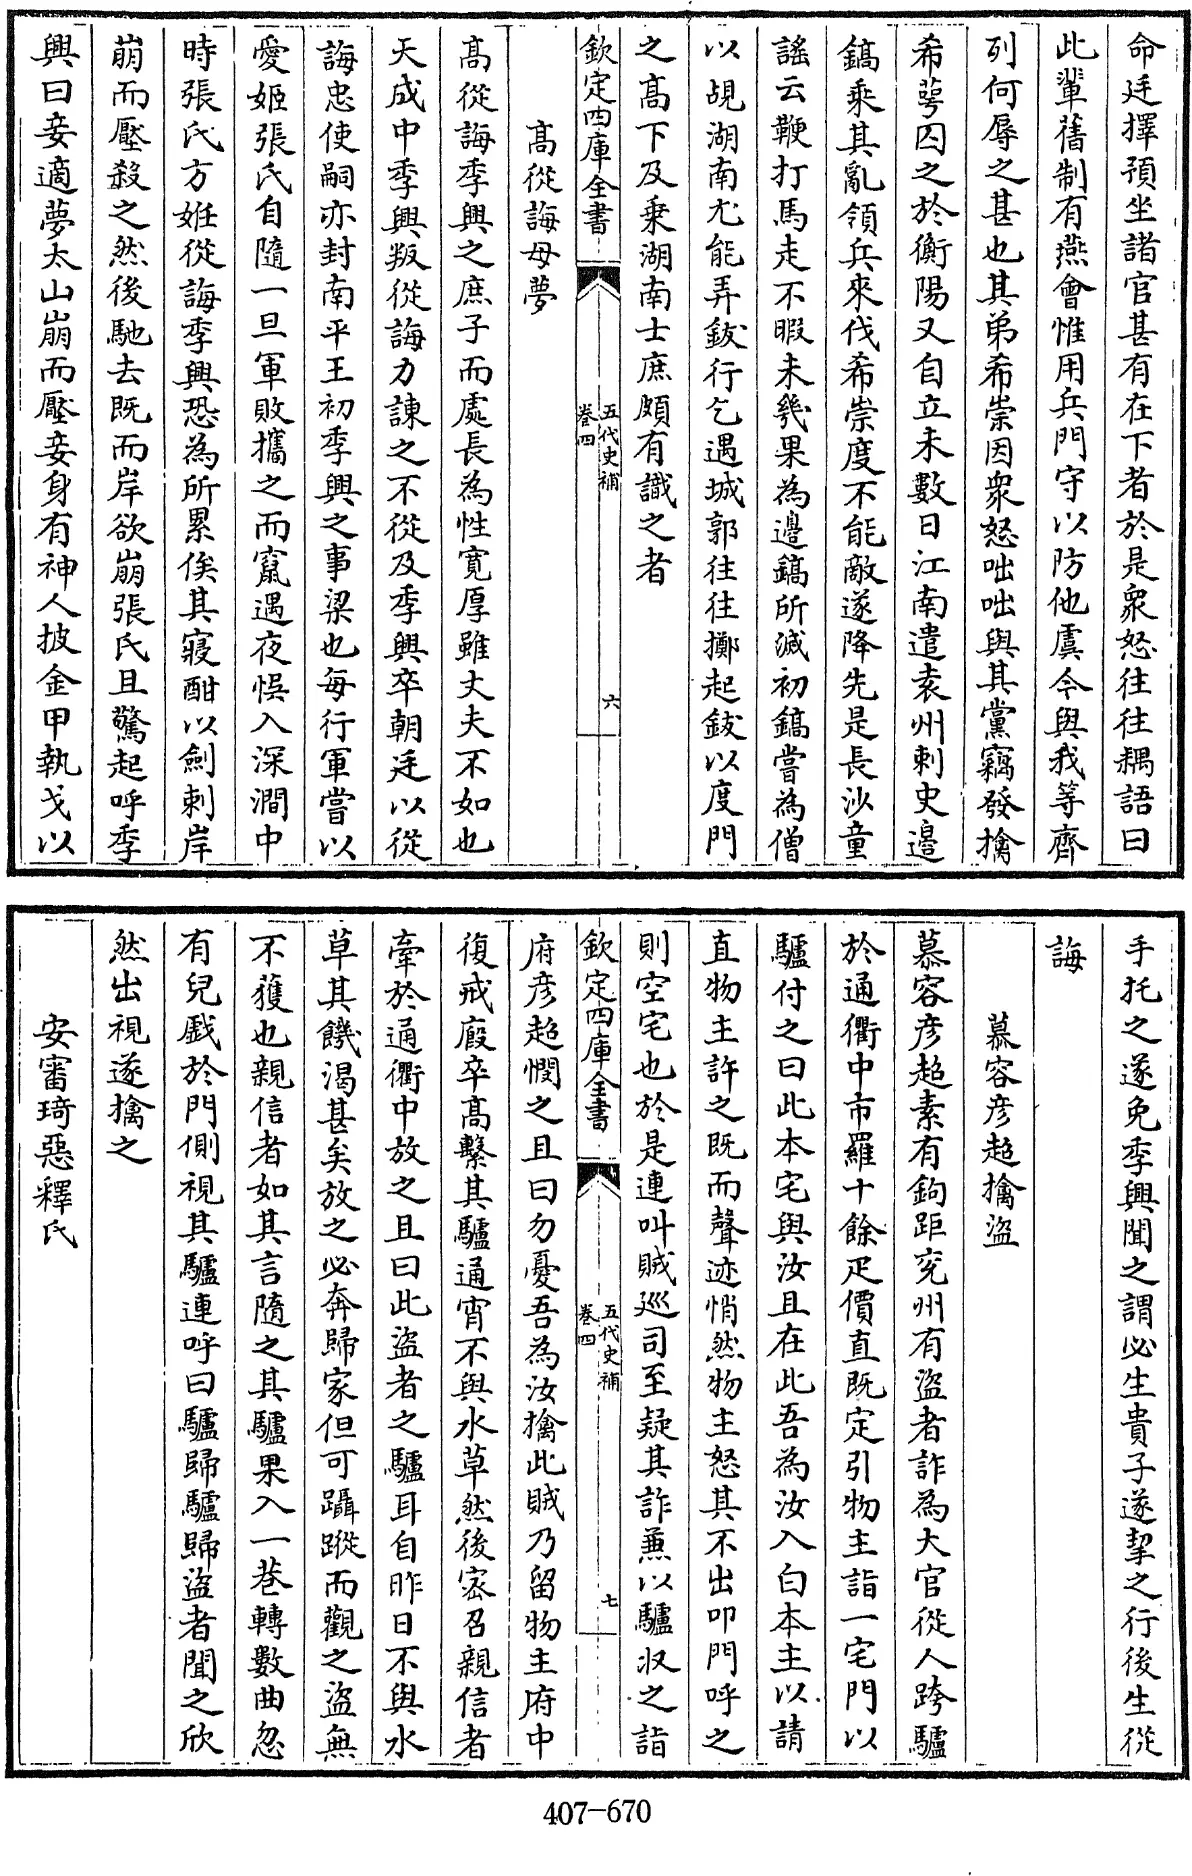 命廷擇預坐諸官甚有在下者於是衆怒往往耦語曰
此輩舊制有燕會惟用兵門守以防他虞今與我等齊
列何辱之甚也其弟希崇因衆怒咄咄與其黨竊發擒
希萼囚之於衡陽又自立未數日江南遣袁州刺史邉
鎬乘其亂領兵來伐希崇度不能敵遂降先是長沙童
謠云鞭打馬走不暇未幾果為邉鎬所滅初鎬嘗為僧
以覘湖南尤能弄鈸行乞遇城郭往往擲起鈸以度門
之髙下及乗湖南士庶頗有識之者
欽定四庫全書
五代史補
卷四
六
髙從誨母夢
髙從誨季興之庶子而處長為性寛厚雖丈夫不如也
天成中季興叛從誨力諫之不從及季興卒朝廷以從
誨忠使嗣亦封南平王初季興之事梁也每行軍嘗以
愛姬張氏自隨一旦軍敗攜之而竄遇夜悞入深澗中
時張氏方姙從誨季興恐為所累俟其寢酣以劍刺岸
崩而壓殺之然後馳去既而岸欲崩張氏且驚起呼季
興曰妾適夢太山崩而壓妾身有神人披金甲執戈以
手托之遂免季興聞之謂必生貴子遂挈之行後生從
誨
慕容彦超擒盜
慕容彦超素有鉤距兖州有盜者詐為大官從人跨驢
於通衢中市羅十餘疋價直既定引物主詣一宅門以
驢付之曰此本宅與汝且在此吾為汝入白本主以請
直物主許之既而聲迹悄然物主怒其不出叩門呼之
則空宅也於是連叫賊廵司至疑其詐兼以驢収之詣
欽定四庫全書
五代史補
卷四
七
府彦超憫之且曰勿憂吾為汝擒此賊乃留物主府中
復戒廐卒髙繫其驢通宵不與水草然後宻召親信者
牽於通衢中放之且曰此盜者之驢耳自昨日不與水
草其饑渴甚矣放之必奔歸家但可躡蹤而觀之盜無
不獲也親信者如其言隨之其驢果入一巷轉數曲忽
有兒戲於門側視其驢連呼曰驢歸驢歸盜者聞之欣
然出視遂擒之
安審琦惡釋氏
407-670